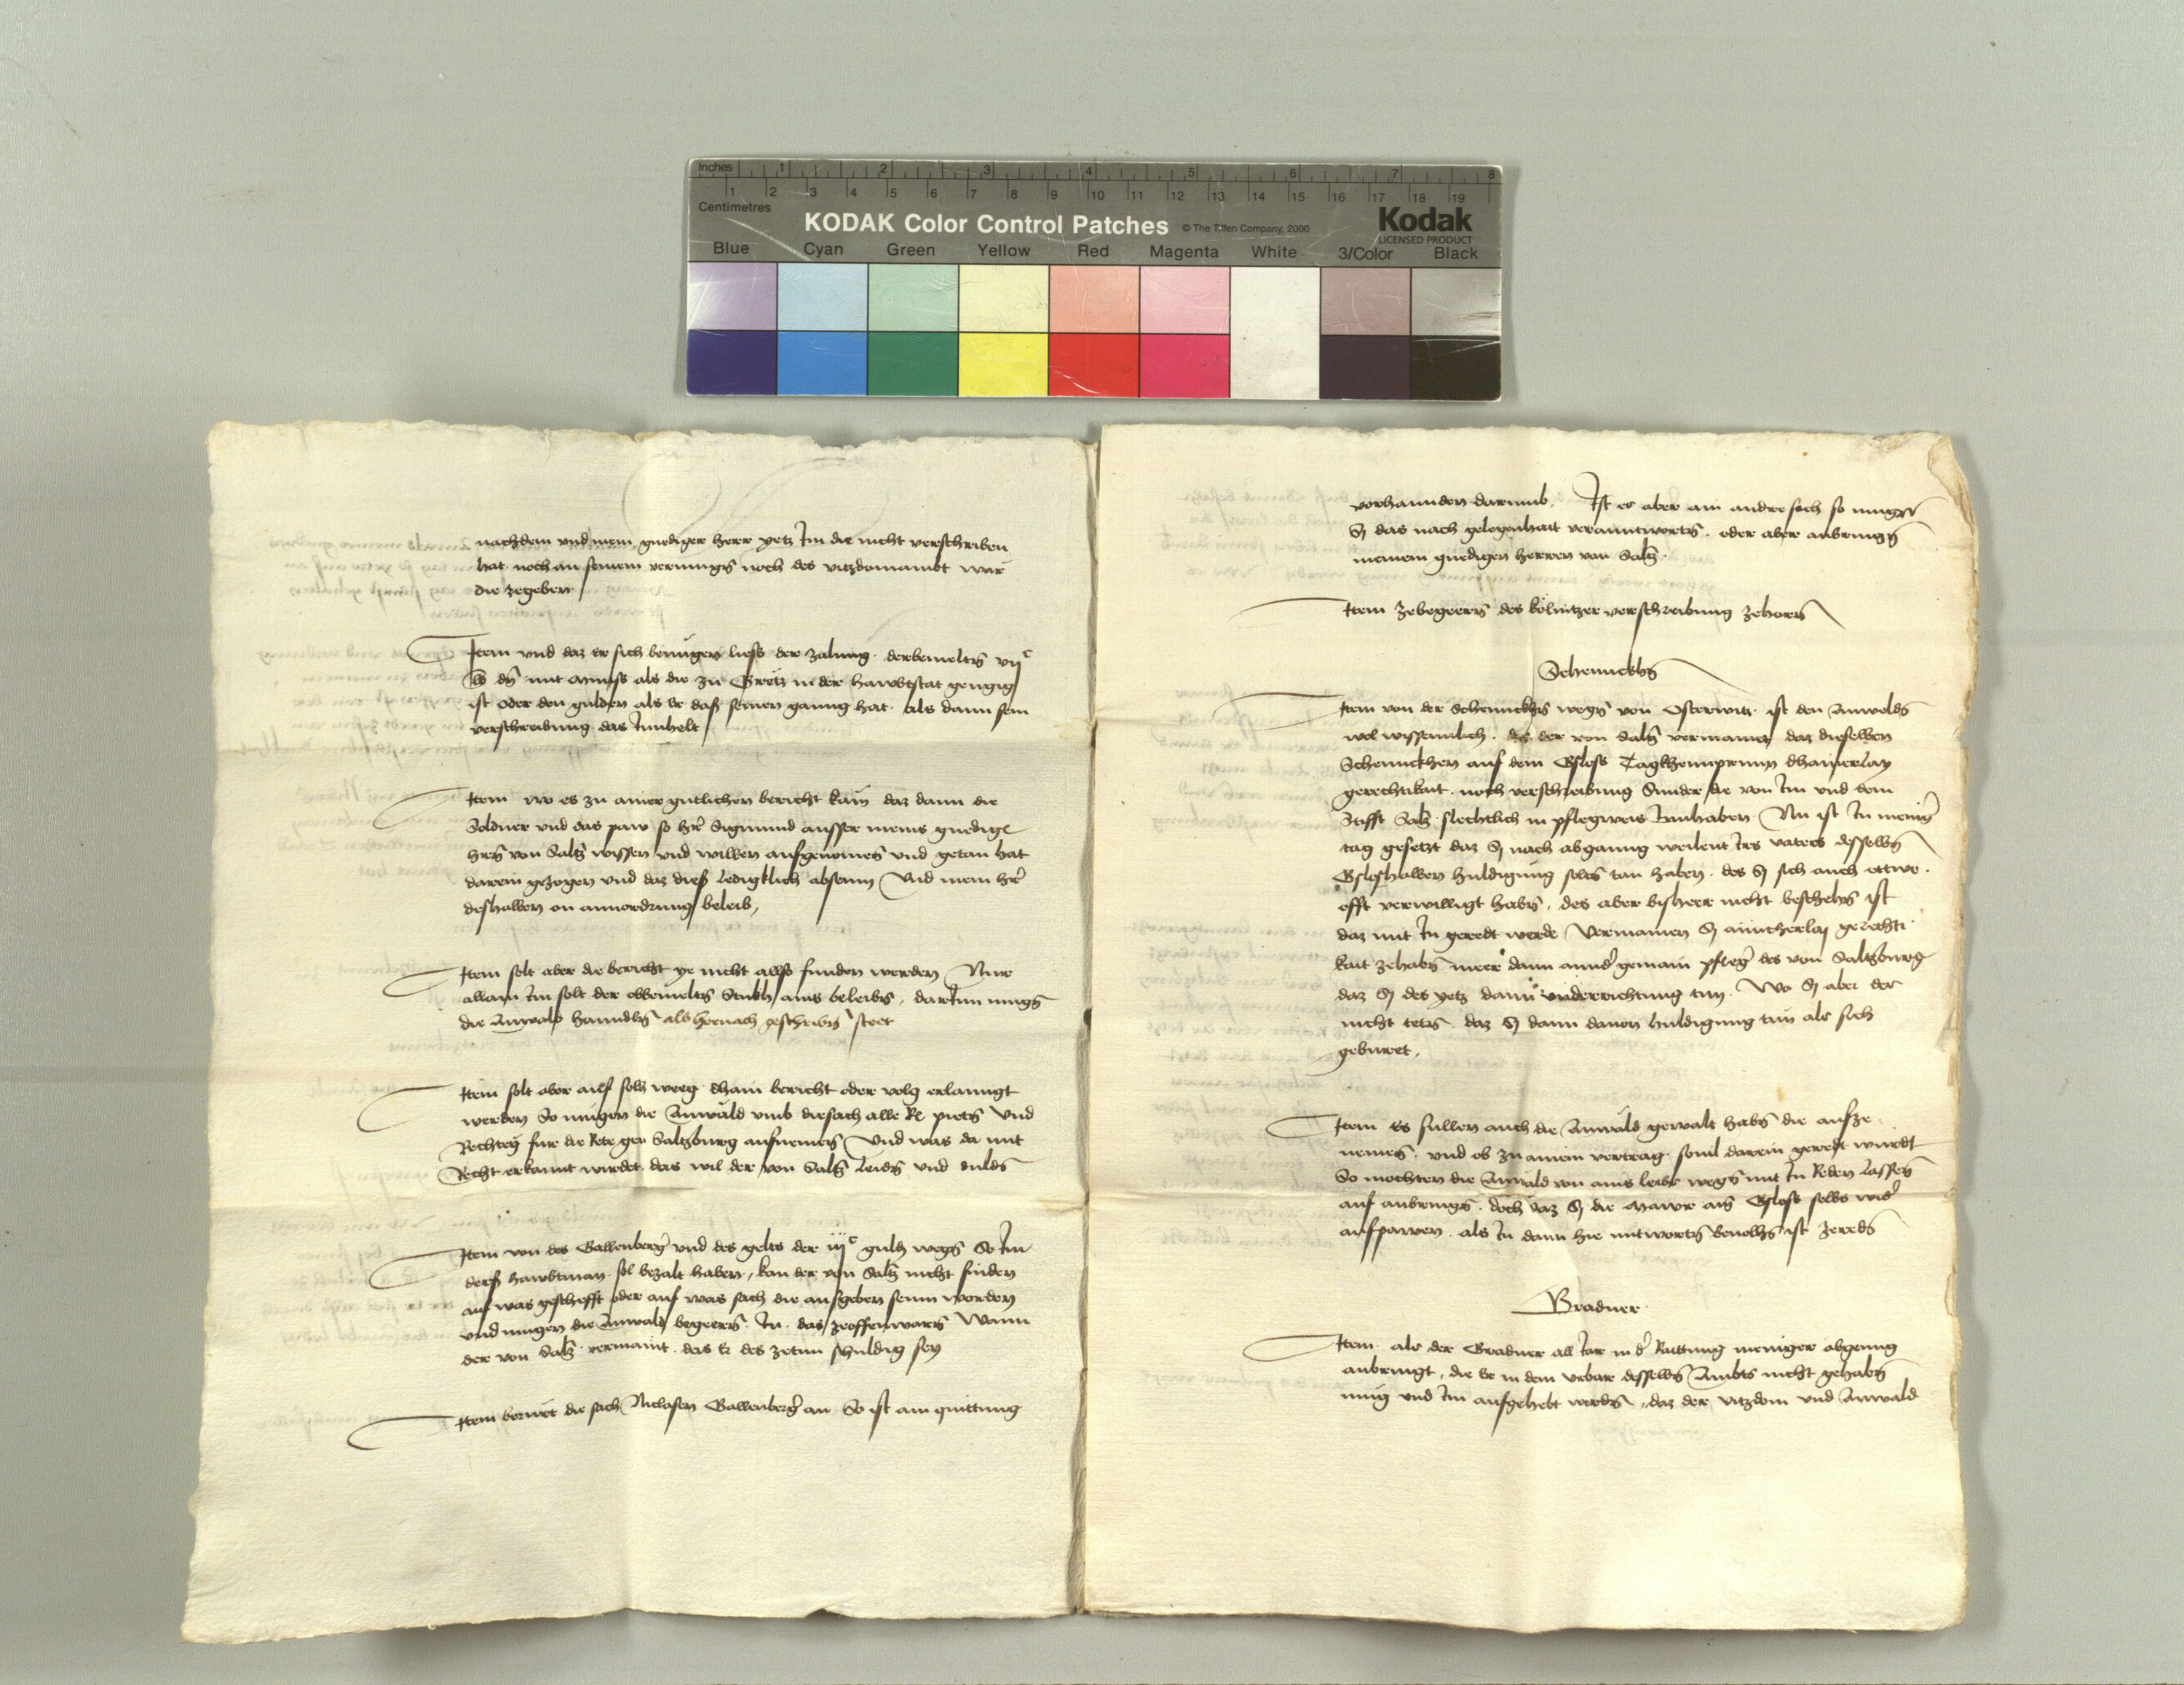 Inches 1 2 3 4 5 6 7 8
1 2 3 4 5 6 7 8 9 10 11 12 13 14 15 16 17 18 19
Centimetres
KODAK Color Control Patches © The Tiffen Company, 2000 Kodak
LICENSED PRODUCT
Blue Cyan Green Yellow Red Magenta White 3/Color Black
nachdem und mein gnediger herr yetz Im die nicht verschriben
hat noch an seinem vermugen noch des vitzdomambt war
die zegeben
Item und daz er sich benugen liess der zalung derbemelten vijc
dn mit munss als die zu Gretz in der hawbtstat gengig
ist oder den gulden als er daß seinen ganng hat als dann sein
verschreibung das Innhelt
Item wo es zu ainer gutlichen bericht kam daz dann die
Soldner und das paw so her Sigmund ausser meins gnedigen
hren von Saltz wissen und willen aufgenomen und getan hat
darein gezogen und daz dieß ledigklich absein Und mein her
deshalben on anuordrung beleib
Item solt aber die bericht ye nicht allso funden werden Nur
allain Im solt der obbemelten Stukh ains beleiben, darInn mugen
die Anwald hanndlen als hernach geschriben steet
Item solt aber auf solh weeg dhain bericht oder volg erlanngt
werden So mugen die Anwald umb diesach alle Re pieten Und
Rechten fur die Rete gen Saltzburg aufnemen Und was da mit
Recht erkannt wirdet das wil der von Saltz leiden und dulden
Item von des Gallenberger und des gelts der iijc guld wegen So Im
derß hawbtman sol bezalt haben, kan der von Saltz nicht finden
auf was geschefft oder auf was sach die ausgeben seinn worden
und mugen die Anwald begeren In das zeoffenwaren Wann
der von Saltz vermaint das Er des zetun schuldig sey
Item beruret die sach Niclasen Gallenberger an So ist ain quittung
vorhannden darumb Ist es aber ain andre sach so mugen
Sy das nach gelegenhait verantwortten oder aber anbringen
meinem gnedigen herren von Saltz
Item zebegeeren des kolnitzer verschreibung zehoren
Schennckhen
Item von der Schennckhen wegen von Osterwitz ist den Anwelden
wol wissennlich daz der von Saltz vermaint daz dieselben
Schennckhen auf dem Gsloss Tagkhennprunn dhainerlay
gerechtikait noch verschreibung Sunder die von Im und dem
Stifft Saltz slechtlich in pflegweis Innhaben Nu ist In meniger
tag gesetzt daz Sy nach abganng weilent Irs vaters desselben
Gsloshalben huldigung solten tan haben des Sy sich auch ettwe
offt verwilligt haben, des aber bisheer nicht beschehen ist
daz mit In geredt werde Vermainen Sy ainicherlay gerechti
kait zehaben meer dann annder gemain pfleger des von Saltzburg
daz Sy des yetz dann underrichtung tun Wo Sy aber der
nicht teten daz Sy dann davon huldigung tun als sich
geburet
Item Es sullen auch die Anwald gewalt haben die aufze
nemen und ob zu ainem vertrag souil darein geredt wurdt
So mochten die Anwald von ains leibs wegen mit In Reden lassen
auf anbringen doch daz Sy die mawr ains Gsloss selbs wider
aufpawen als In dann hie mitworten beuolhen ist zereden
Gradner
Item als der Gradner all Iar in der Raittung meniger abganng
anbringt, die Er in dem urbar desselben Ambts nicht gehaben
mug und Im aufgehebt werden, daz der vitzdom und Anwald